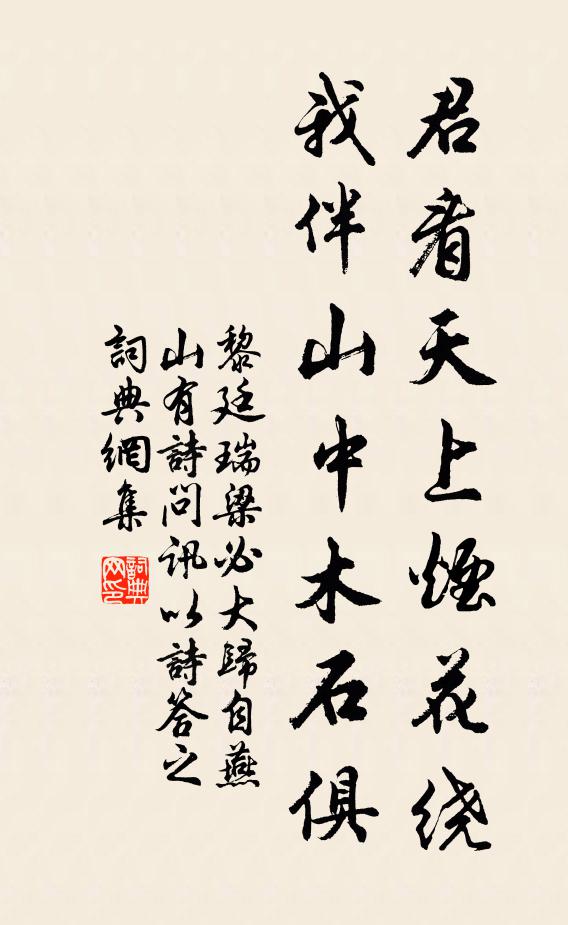 君看天上煙花绕
我伴山中木石俱
黎廷瑞梁必大歸自燕
山有詩問訊以詩答之
詞典網集
詞典网印